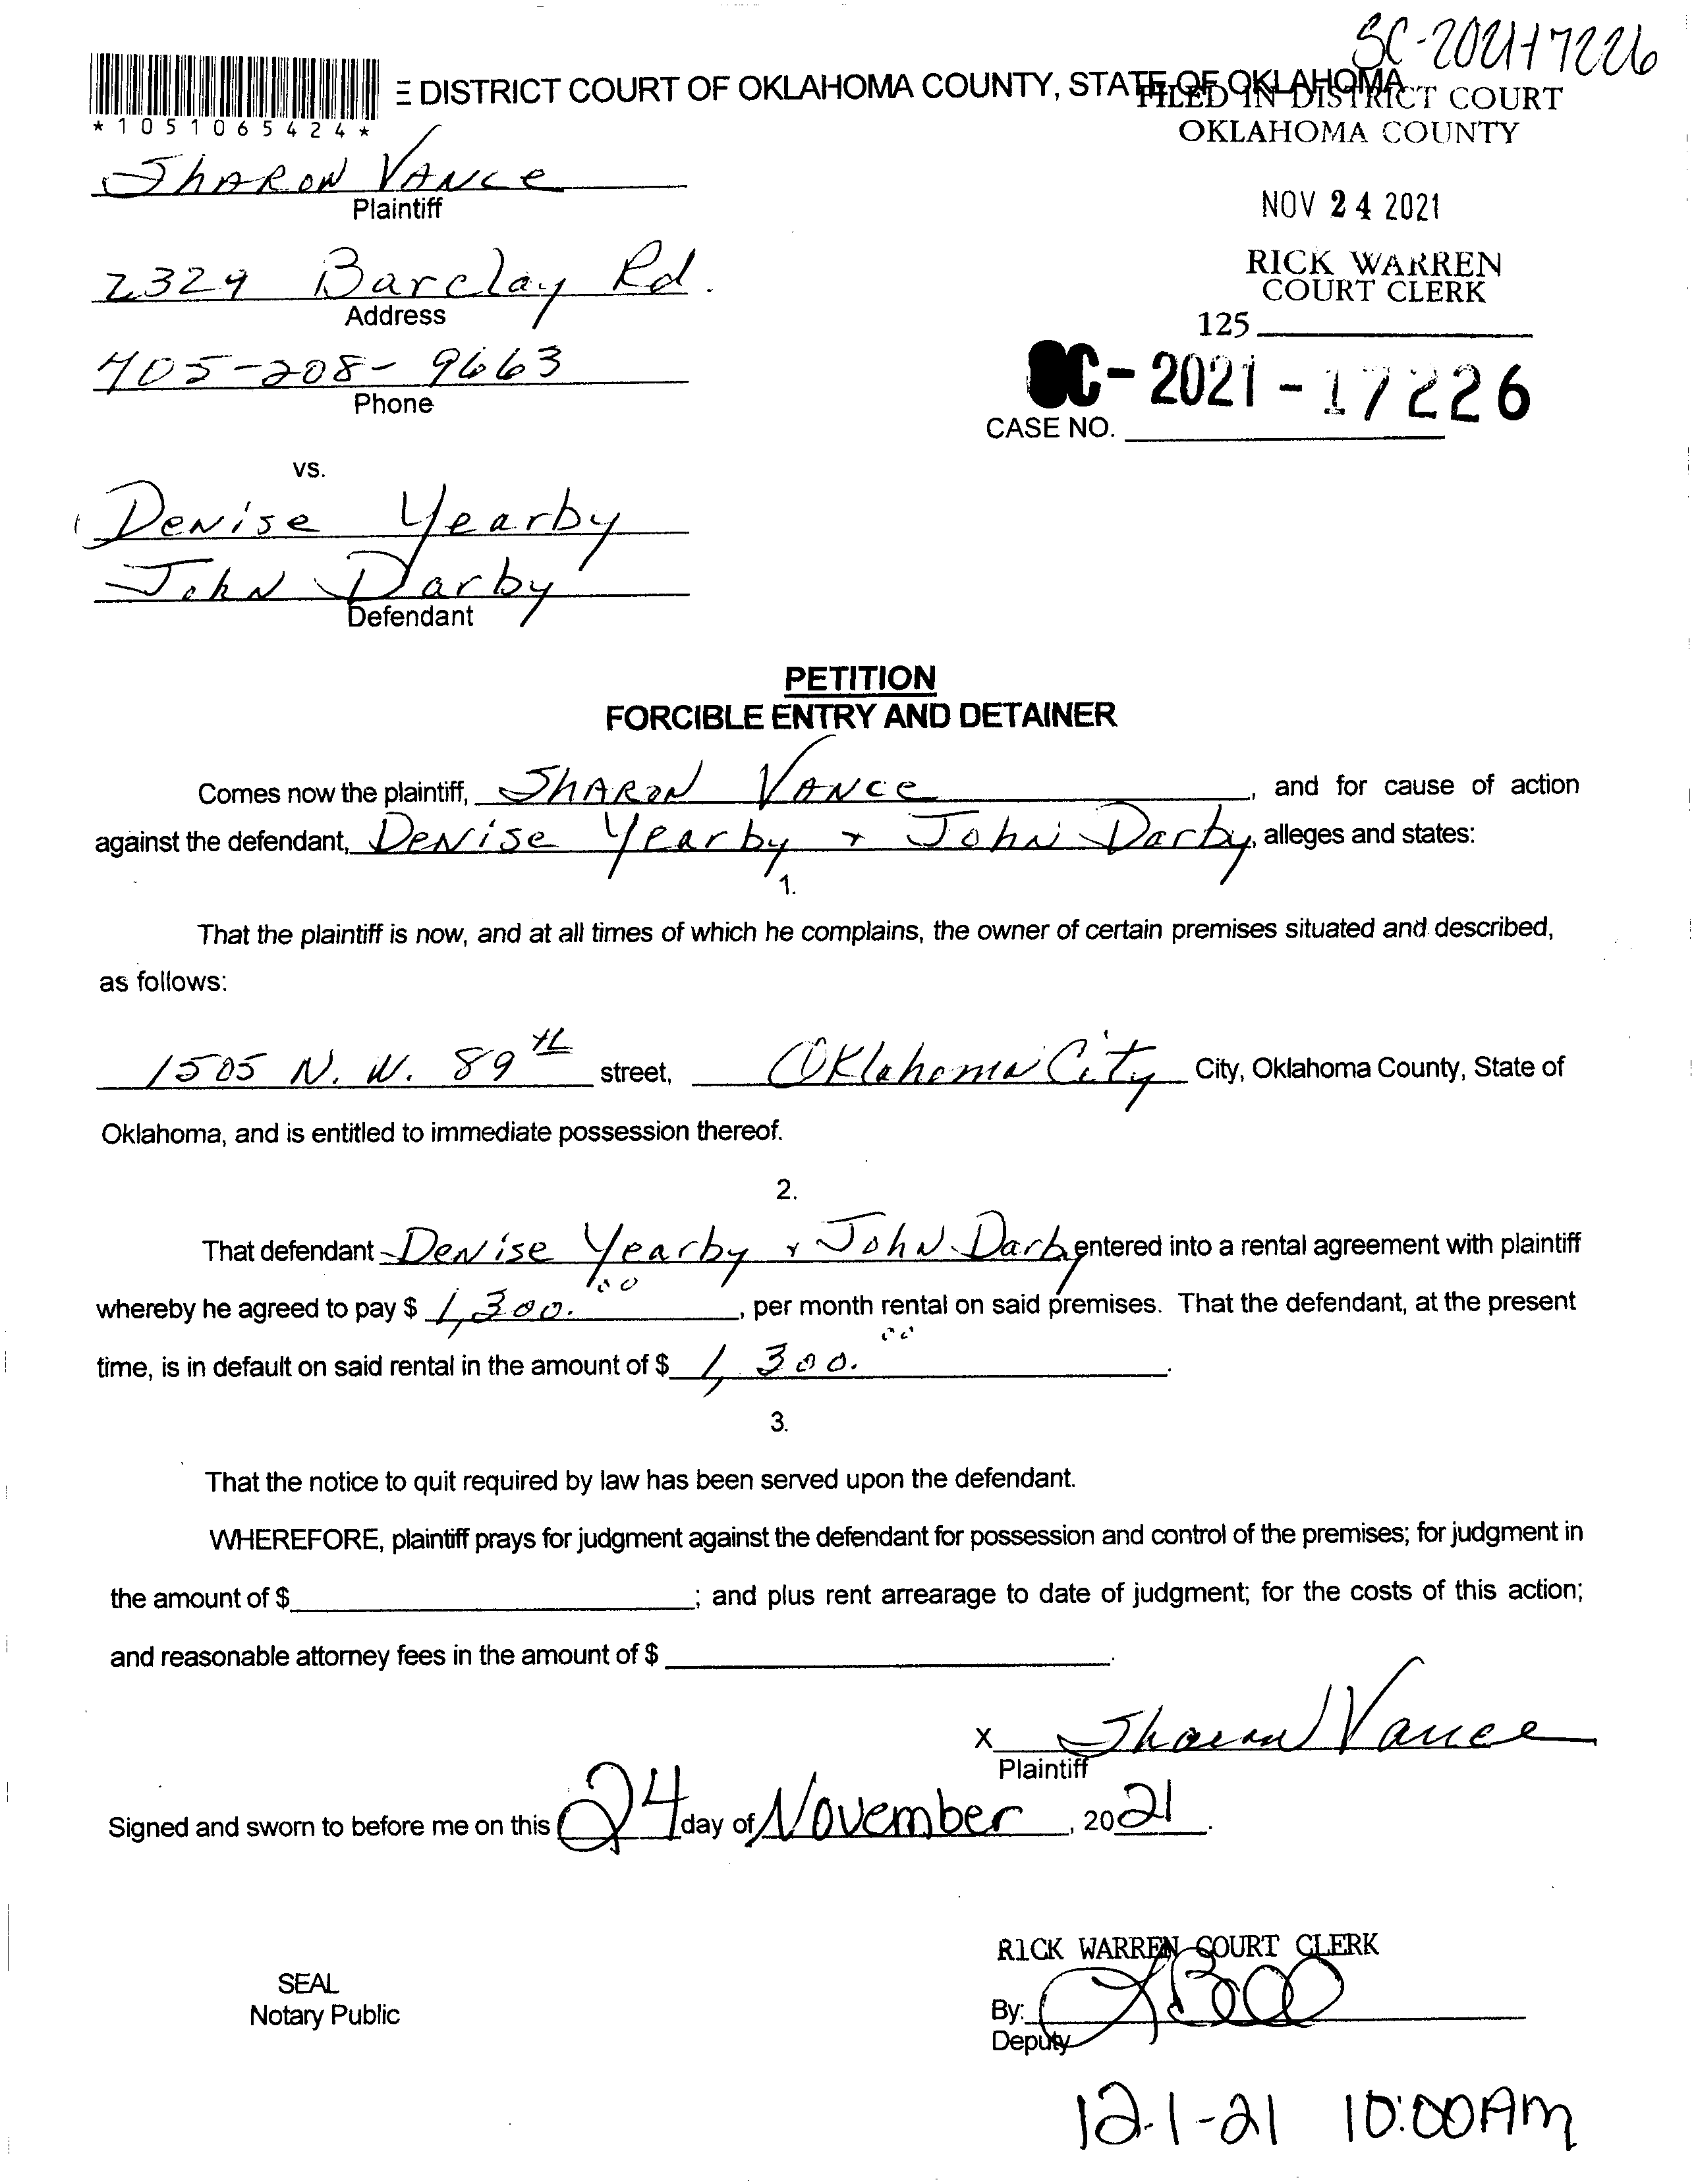 SC-2021-17226
E DISTRICT COURT OF OKLAHOMA COUNTY, STATE OF OKLAHOMA
*1051065424*
FILED IN DISTRICT COURT
OKLAHOMA COUNTY
Sharon Vance
Plaintiff
NOV 24 2021
RICK WARREN
COURT CLERK
125
2329 Barclay Rd.
Address
405-208-9663
Phone
SC-2021-17226
CASE NO.
vs.
Denise Yearby
John Darby
Defendant
PETITION
FORCIBLE ENTRY AND DETAINER
Comes now the plaintiff, Sharon Vance, and for cause of action
against the defendant, Denise Yearby + John Darby, alleges and states:
1.
That the plaintiff is now, and at all times of which he complains, the owner of certain premises situated and described,
as follows:
1505 N. W. 89th street, Oklahoma City City, Oklahoma County, State of
Oklahoma, and is entitled to immediate possession thereof.
2.
That defendant Denise Yearby + John Darby entered into a rental agreement with plaintiff
whereby he agreed to pay $ 1,300.00, per month rental on said premises. That the defendant, at the present
time, is in default on said rental in the amount of $ 1,300.00.
3.
That the notice to quit required by law has been served upon the defendant.
WHEREFORE, plaintiff prays for judgment against the defendant for possession and control of the premises; for judgment in
the amount of $ ; and plus rent arrearage to date of judgment; for the costs of this action;
and reasonable attorney fees in the amount of $ .
X Sharon Vance
Plaintiff
Signed and sworn to before me on this 24 day of November, 2021.
RICK WARREN COURT CLERK
SEAL
Notary Public
By:
Deputy
12-1-21 10:00AM